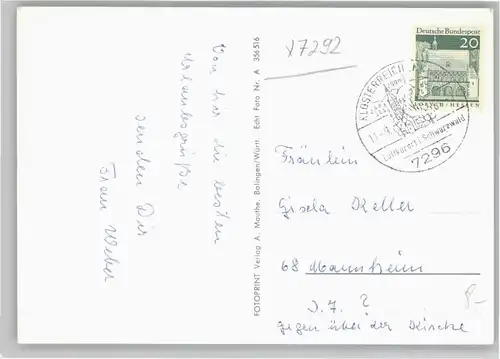 Von hier die besten
Urlaubsgrüße
senden Dir
Frau Weber
FOTOPRINT Verlag A. Mauthe, Balingen/Württ. Echt Foto Nr. A 356516
x7292
Deutsche Bundespost
20
LORSCH / HESSEN
KLOSTERREICHENBACH
Luftkurort i. Schwarzwald
7296
Fräulein
Gisela Keller
68 Mannheim
J. 7. ?
gegen über der Kirche
8.-